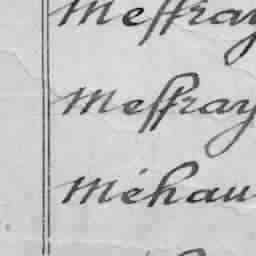 Meffray
Meffray
Méhau